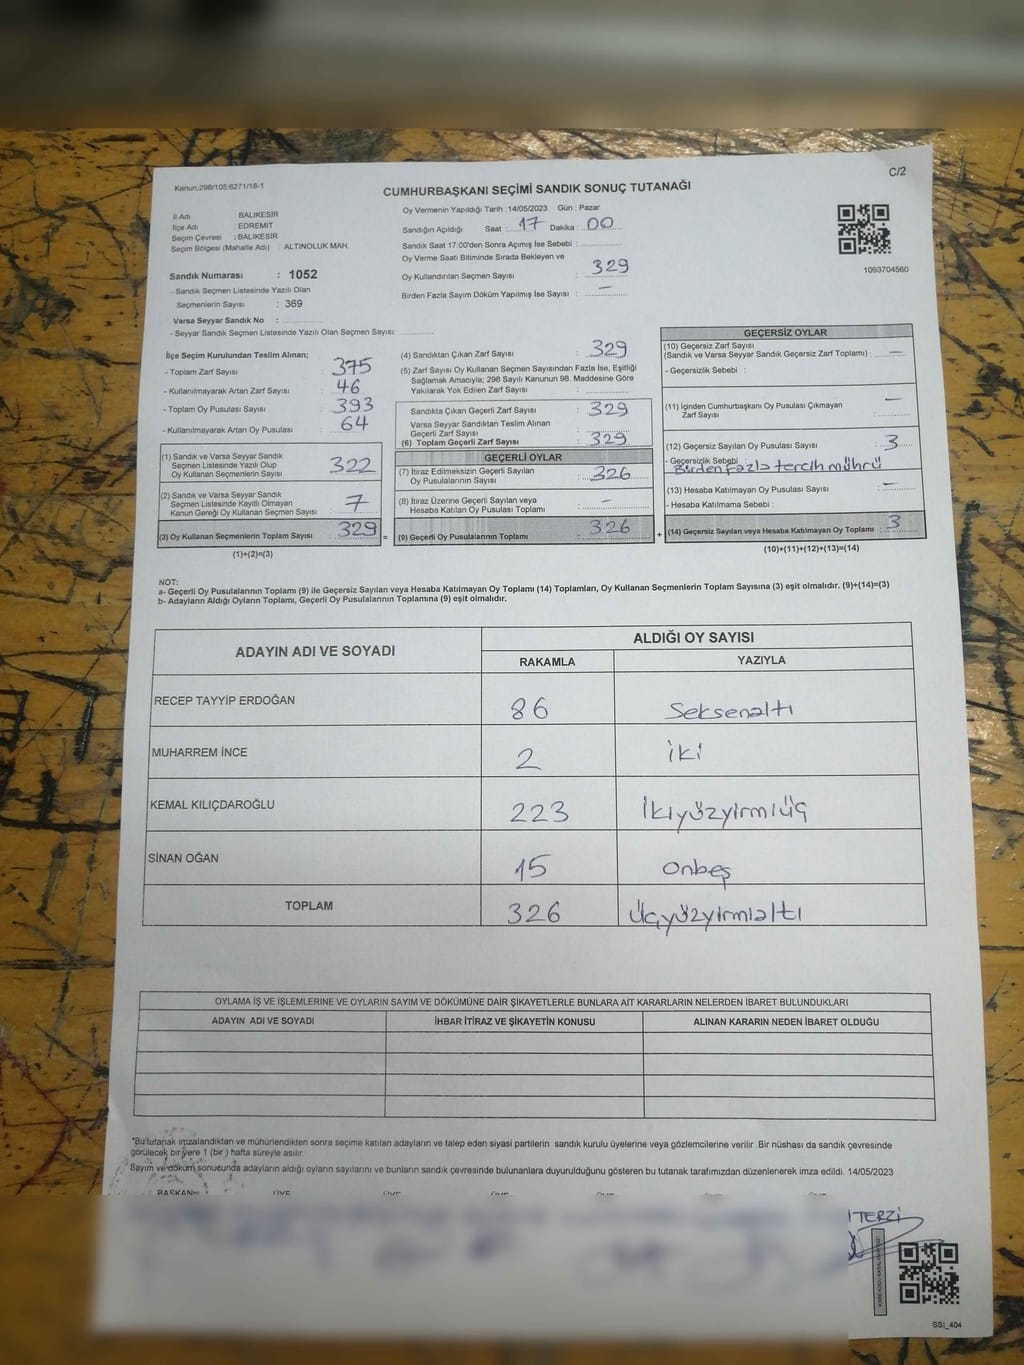 Kanun;298/105;6271/18-1
C/2
CUMHURBAŞKANI SEÇİMİ SANDIK SONUÇ TUTANAĞI
İl Adı BALIKESİR
İlçe Adı EDREMİT
Seçim Çevresi : BALIKESİR
Seçim Bölgesi (Mahalle Adı) : ALTINOLUK MAH.
Oy Vermenin Yapıldığı Tarih : 14/05/2023 Gün : Pazar
Sandığın Açıldığı Saat : 17 Dakika : 00
Sandık Saat 17:00'den Sonra Açımış İse Sebebi :
Oy Verme Saati Bitiminde Sırada Bekleyen ve
Oy Kullandırılan Seçmen Sayısı : 329
Birden Fazla Sayım Döküm Yapılmış İse Sayısı : —
1093704560
Sandık Numarası : 1052
- Sandık Seçmen Listesinde Yazılı Olan
Seçmenlerin Sayısı : 369
Varsa Seyyar Sandık No :
- Seyyar Sandık Seçmen Listesinde Yazılı Olan Seçmen Sayısı:
İlçe Seçim Kurulundan Teslim Alınan;
- Toplam Zarf Sayısı : 375
- Kullanılmayarak Artan Zarf Sayısı : 46
- Toplam Oy Pusulası Sayısı : 393
- Kullanılmayarak Artan Oy Pusulası : 64
(1) Sandık ve Varsa Seyyar Sandık
Seçmen Listesinde Yazılı Olup
Oy Kullanan Seçmenlerin Sayısı : 322
(2) Sandık ve Varsa Seyyar Sandık
Seçmen Listesinde Kayıtlı Olmayan
Kanun Gereği Oy Kullanan Seçmen Sayısı : 7
(3) Oy Kullanan Seçmenlerin Toplam Sayısı : 329 =
(1)+(2)=(3)
(4) Sandıktan Çıkan Zarf Sayısı : 329
(5) Zarf Sayısı Oy Kullanan Seçmen Sayısından Fazla İse, Eşitliği
Sağlamak Amacıyla; 298 Sayılı Kanunun 98. Maddesine Göre
Yakılarak Yok Edilen Zarf Sayısı :
Sandıkta Çıkan Geçerli Zarf Sayısı : 329
Varsa Seyyar Sandıktan Teslim Alınan
Geçerli Zarf Sayısı :
(6) Toplam Geçerli Zarf Sayısı : 329
GEÇERLİ OYLAR
(7) İtiraz Edilmeksizin Geçerli Sayılan
Oy Pusulalarının Sayısı : 326
(8) İtiraz Üzerine Geçerli Sayılan veya
Hesaba Katılan Oy Pusulası Toplamı : —
(9) Geçerli Oy Pusulalarının Toplamı : 326 +
GEÇERSİZ OYLAR
(10) Geçersiz Zarf Sayısı
(Sandık ve Varsa Seyyar Sandık Geçersiz Zarf Toplamı) : —
- Geçersizlik Sebebi :
(11) İçinden Cumhurbaşkanı Oy Pusulası Çıkmayan
Zarf Sayısı : —
(12) Geçersiz Sayılan Oy Pusulası Sayısı : 3
- Geçersizlik Sebebi :
Birden fazla tercih mührü
(13) Hesaba Katılmayan Oy Pusulası Sayısı : —
- Hesaba Katılmama Sebebi :
(14) Geçersiz Sayılan veya Hesaba Katılmayan Oy Toplamı : 3
(10)+(11)+(12)+(13)=(14)
NOT:
a- Geçerli Oy Pusulalarının Toplamı (9) ile Geçersiz Sayılan veya Hesaba Katılmayan Oy Toplamı (14) Toplamları, Oy Kullanan Seçmenlerin Toplam Sayısına (3) eşit olmalıdır. (9)+(14)=(3)
b- Adayların Aldığı Oyların Toplamı, Geçerli Oy Pusulalarının Toplamına (9) eşit olmalıdır.
ADAYIN ADI VE SOYADI
ALDIĞI OY SAYISI
RAKAMLA YAZIYLA
RECEP TAYYİP ERDOĞAN 86 Seksenaltı
MUHARREM İNCE 2 iki
KEMAL KILIÇDAROĞLU 223 İkiyüzyirmiüç
SİNAN OĞAN 15 onbeş
TOPLAM 326 Üçyüzyirmialtı
OYLAMA İŞ VE İŞLEMLERİNE VE OYLARIN SAYIM VE DÖKÜMÜNE DAİR ŞİKAYETLERLE BUNLARA AİT KARARLARIN NELERDEN İBARET BULUNDUKLARI
ADAYIN ADI VE SOYADI İHBAR İTİRAZ VE ŞİKAYETİN KONUSU ALINAN KARARIN NEDEN İBARET OLDUĞU
*Bu tutanak imzalandıktan ve mühürlendikten sonra seçime katılan adayların ve talep eden siyasi partilerin sandık kurulu üyelerine veya gözlemcilerine verilir. Bir nüshası da sandık çevresinde
görülecek bir yere 1 (bir ) hafta süreyle asılır.
Sayım ve döküm sonucunda adayların aldığı oyların sayılarını ve bunların sandık çevresinde bulunanlara duyurulduğunu gösteren bu tutanak tarafımızdan düzenlenerek imza edildi. 14/05/2023
BAŞKAN ÜYE ÜYE ÜYE ÜYE ÜYE ÜYE
TERZİ
SSİ_404